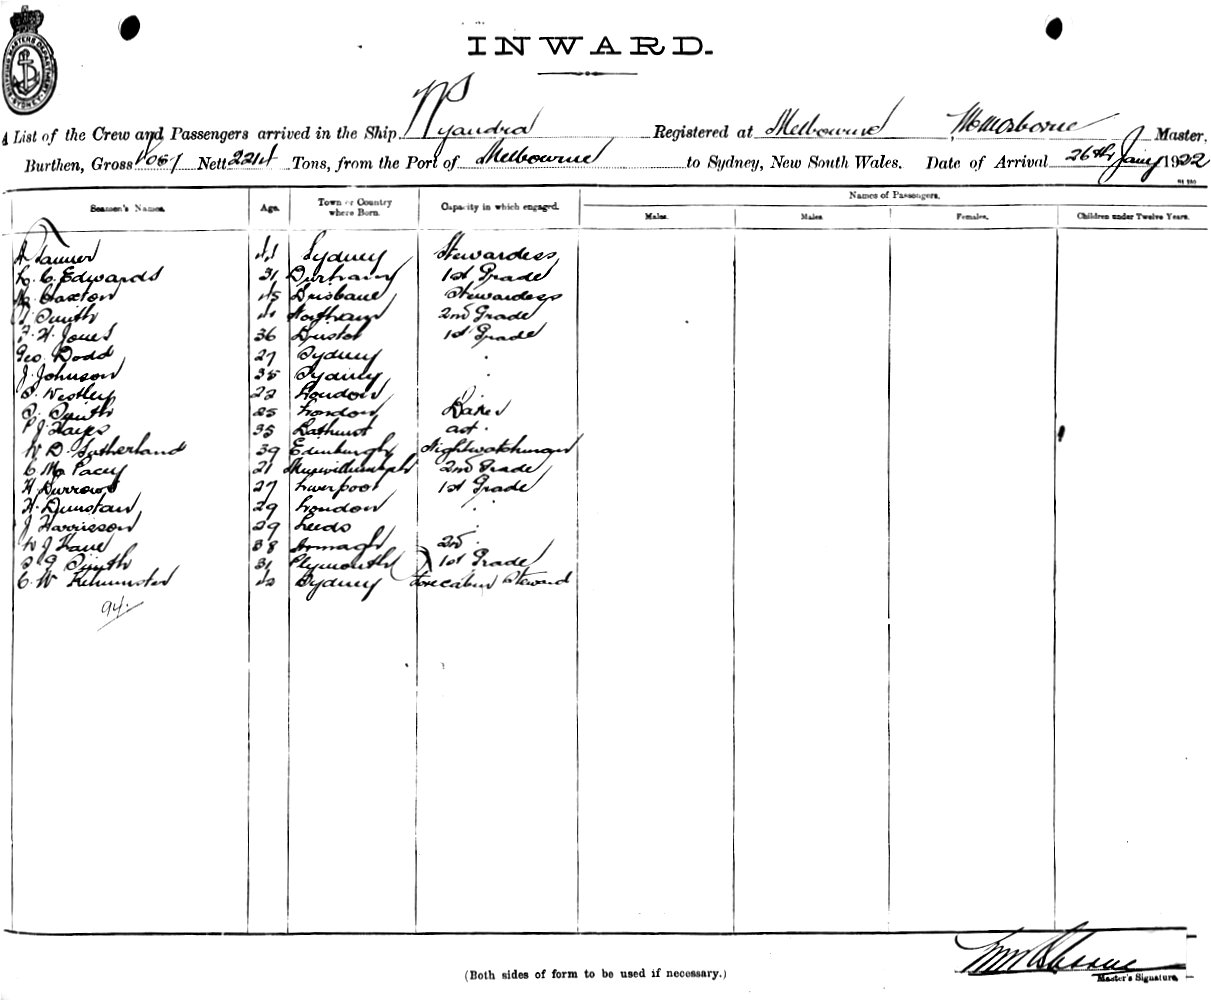 SHIPPING MASTERS DEPARTMENT SYDNEY
INWARD.
A List of the Crew and Passengers arrived in the Ship Wyandra Registered at Melbourne Wm Osborne Master.
Burthen, Gross Nett Tons, from the Port of Melbourne to Sydney, New South Wales. Date of Arrival 26th Jany 1922
Seamen's Names. Age. Town or Country where Born. Capacity in which engaged. Names of Passengers.
Males. Males. Females. Children under Twelve Years.
Tanner Sydney Stewardess
L. C. Edwards 31 Durham 1st Grade
Claxton 45 Brisbane Stewardess
Smith 2nd Grade
F. H. Jones 36 Bristol 1st Grade
Geo. Dodd 27 Sydney "
J. Johnson 35 Sydney "
Westley 22 London "
Smith 25 London Baker
P J Hayes 35 Bathurst ast.
W D. Sutherland 39 Edinburgh Nightwatchman
C. Mc Pacey 21 2nd Grade
H Burrows 27 Liverpool 1st Grade
H. Dunstan 29 London "
J Harrisson 29 Leeds "
W J Kane 38 Armagh 2nd "
Smyth 31 Plymouth 1st Grade
C. W Kilminster 42 Sydney Forecabin Steward
94.
(Both sides of form to be used if necessary.)
Wm Osborne
Master's Signature.